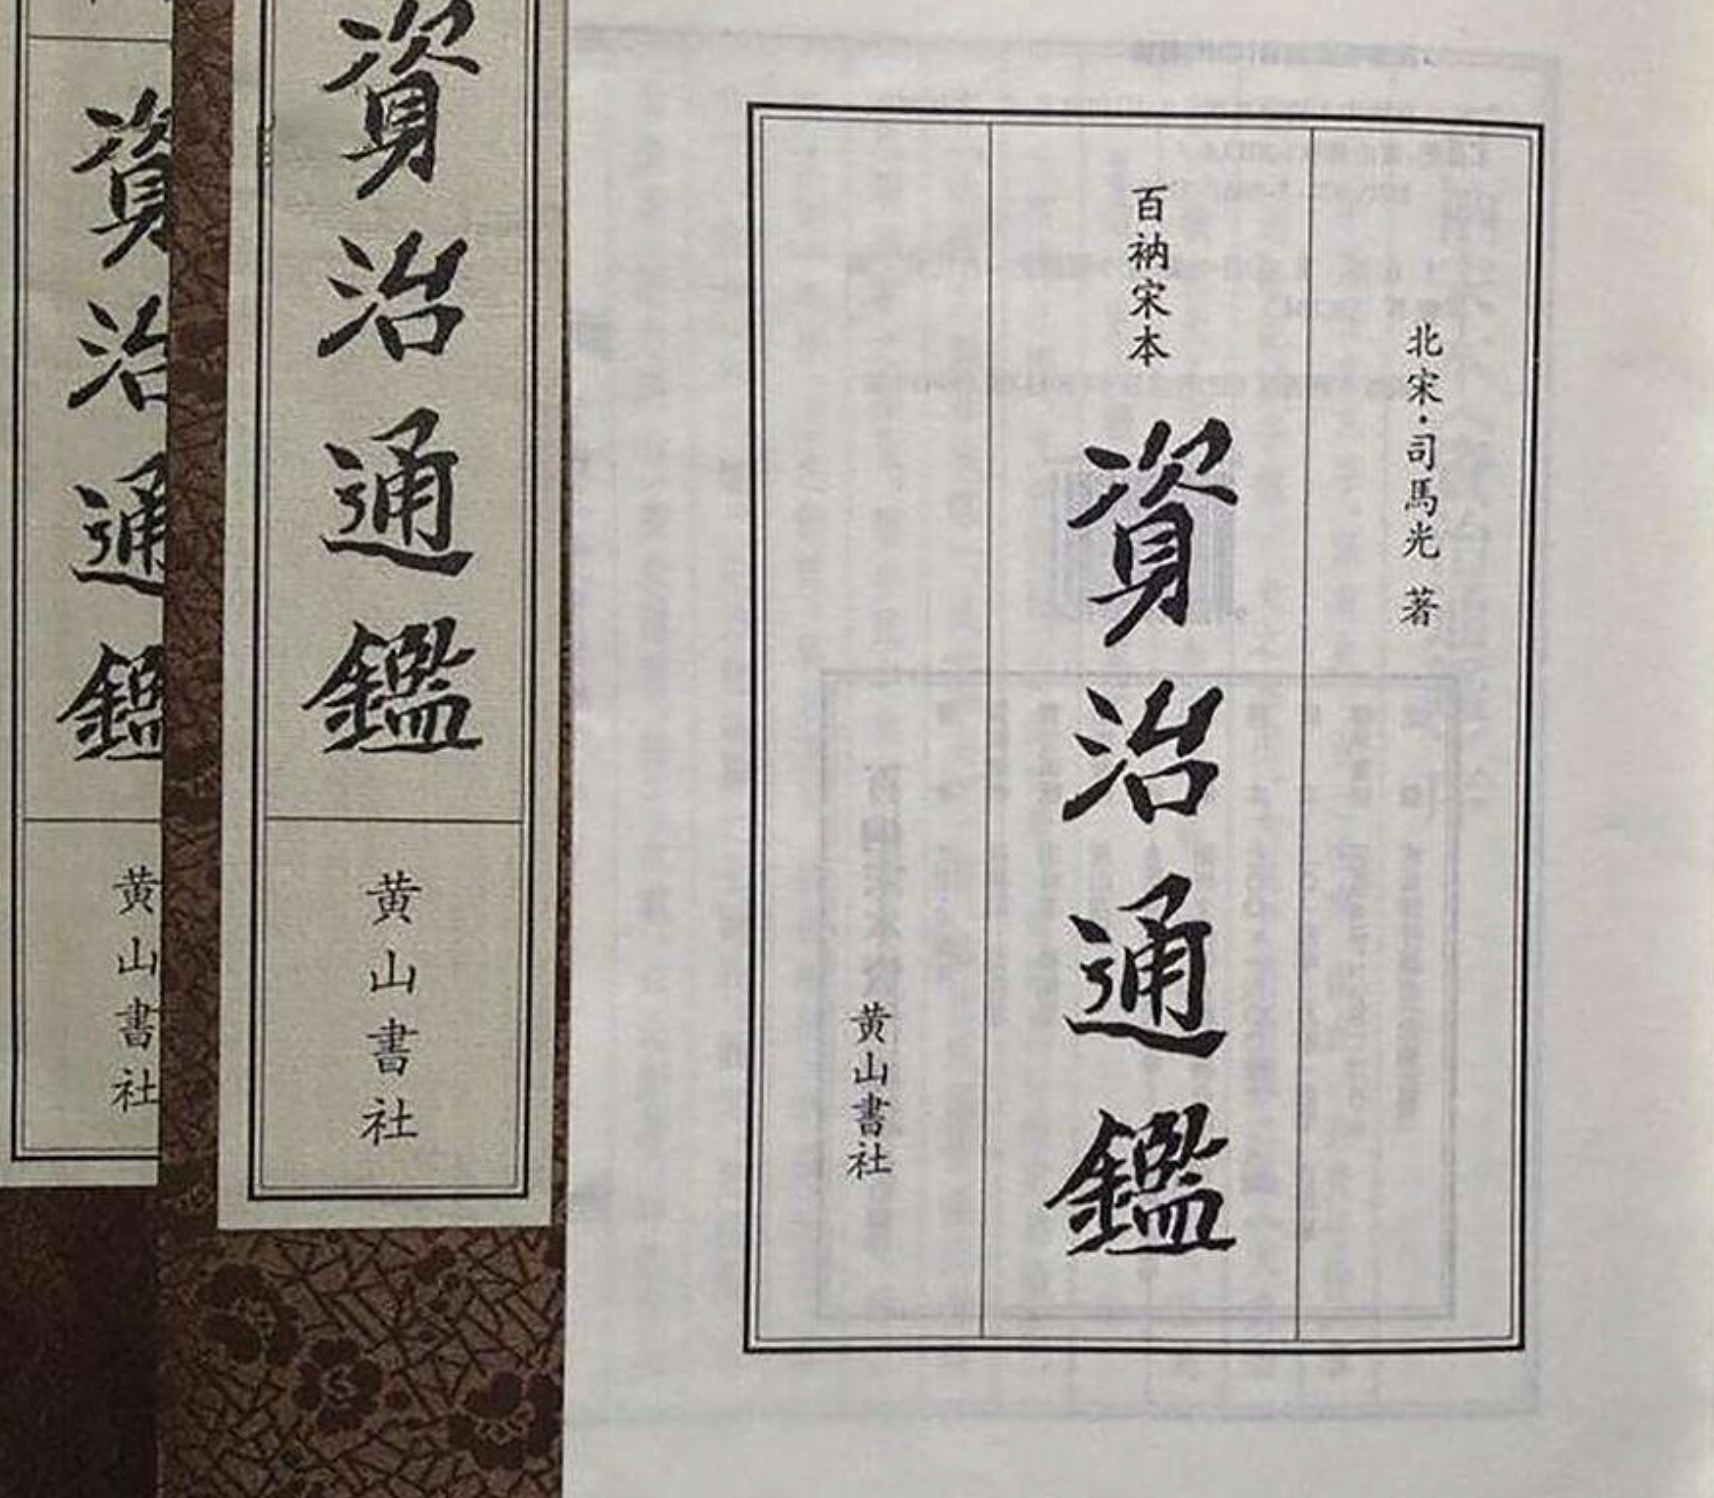 北宋·司馬光 著
百衲宋本
資治通鑑
黄山書社
資治通鑑
黄山書社
資治通鑑
黄山書社